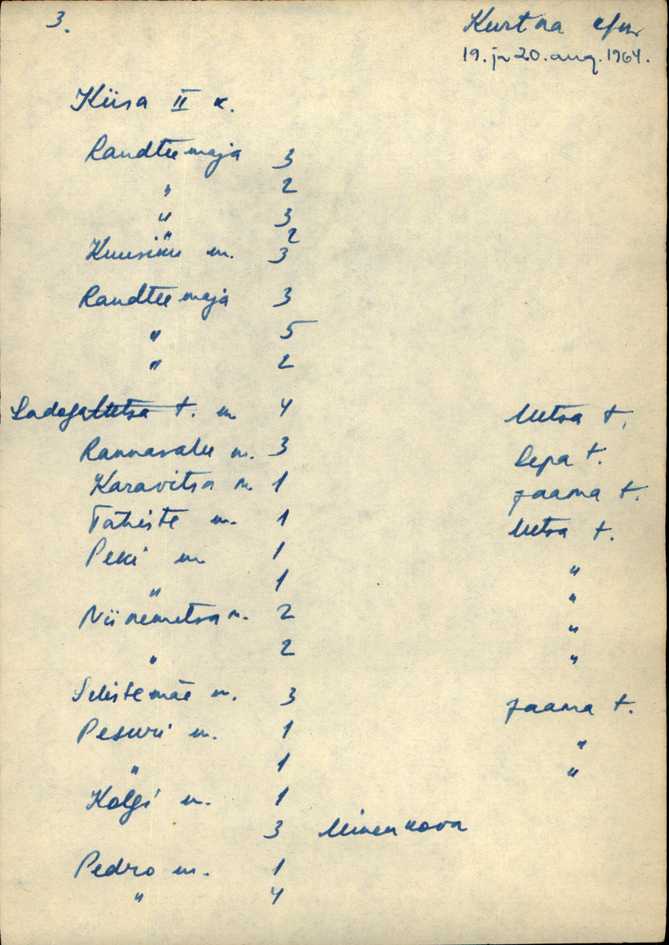 3.
Kurtna
19. ja 20. aug. 1964.
Kiisa II k.
Raudtee maja 3
" 2
" 3
" 2
Kuusiku m. 3
Raudtee maja 3
" 5
" 2
t. m 4 Metsa t.
Rannavalu m. 3 Lepa t.
Karavitsa m. 1 Jaama t.
Taheste m. 1 Metsa t.
Peki m 1 "
" 1 "
Niinemetsa m. 2 "
" 2 "
Silistemäe m. 3 Jaama t.
Pesuri m. 1 "
" 1 "
Kolgi m. 1
3
Pedro m. 1
" 4